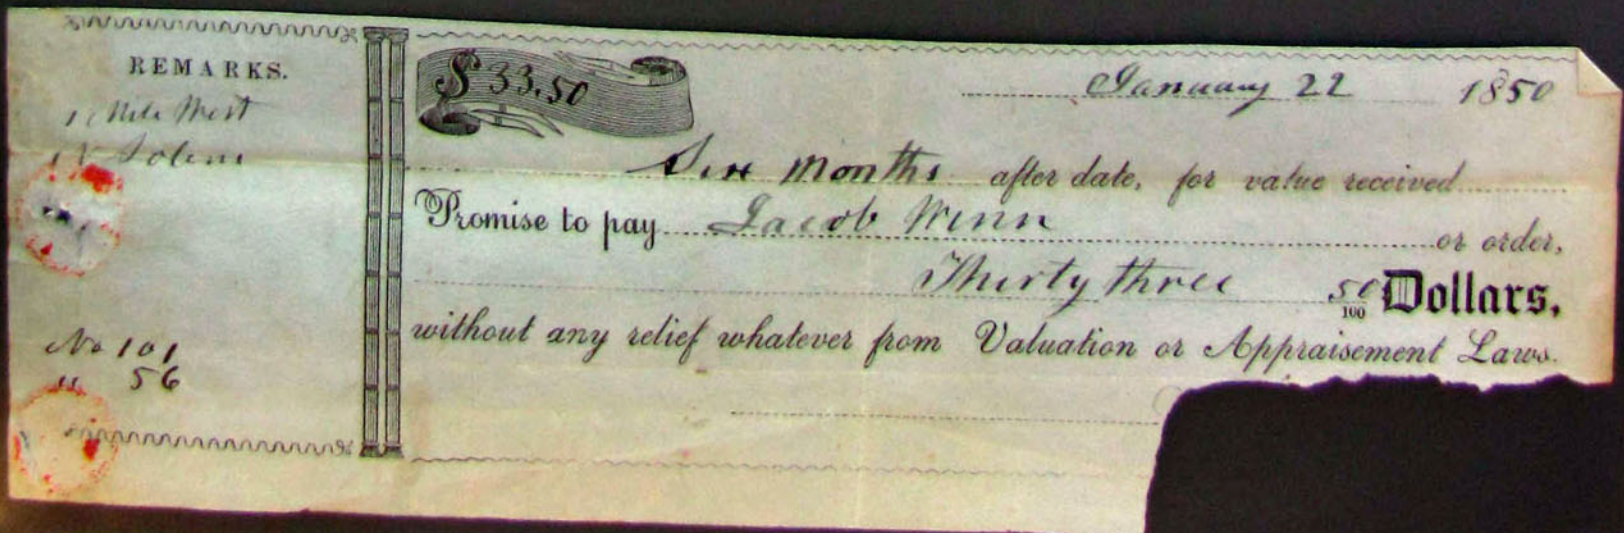 REMARKS.
1 Mile West
N Solem
No 101
" 56
$ 33.50
January 22 1850
Six Months after date, for value received
Promise to pay Jacob Winn or order,
Thirty three 50/100 Dollars,
without any relief whatever from Valuation or Appraisement Laws.